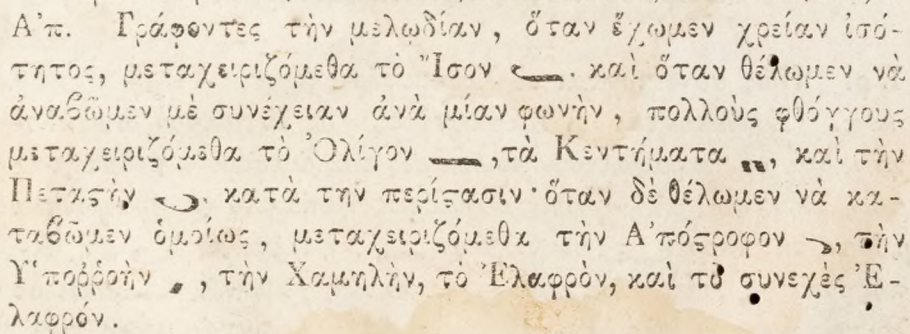 Α᾿π. Γράφοντες τὴν μελῳδίαν, ὅταν ἔχωμεν χρείαν ἰσό-
τητος, μεταχειριζόμεθα τὸ Ἴσον 𝁆. καὶ ὅταν θέλωμεν νὰ
ἀναβῶμεν μὲ συνέχειαν ἀνὰ μίαν φωνὴν, πολλοὺς φθόγγους
μεταχειριζόμεθα τὸ Ὀλίγον 𝁇, τὰ Κεντήματα 𝁊, καὶ τὴν
Πεταϛὴν 𝁉. κατὰ την περίϛασιν· ὅταν δὲ θέλωμεν νὰ κα-
ταβῶμεν ὁμοίως, μεταχειριζόμεθα τὴν Α᾿πόϛροφον 𝁎, τὴν
Υ῾ποῤῥοὴν 𝁑, τὴν Χαμηλὴν, τὸ Ἐλαφρὸν, καὶ τὸ συνεχὲς Ἐ-
λαφρόν.